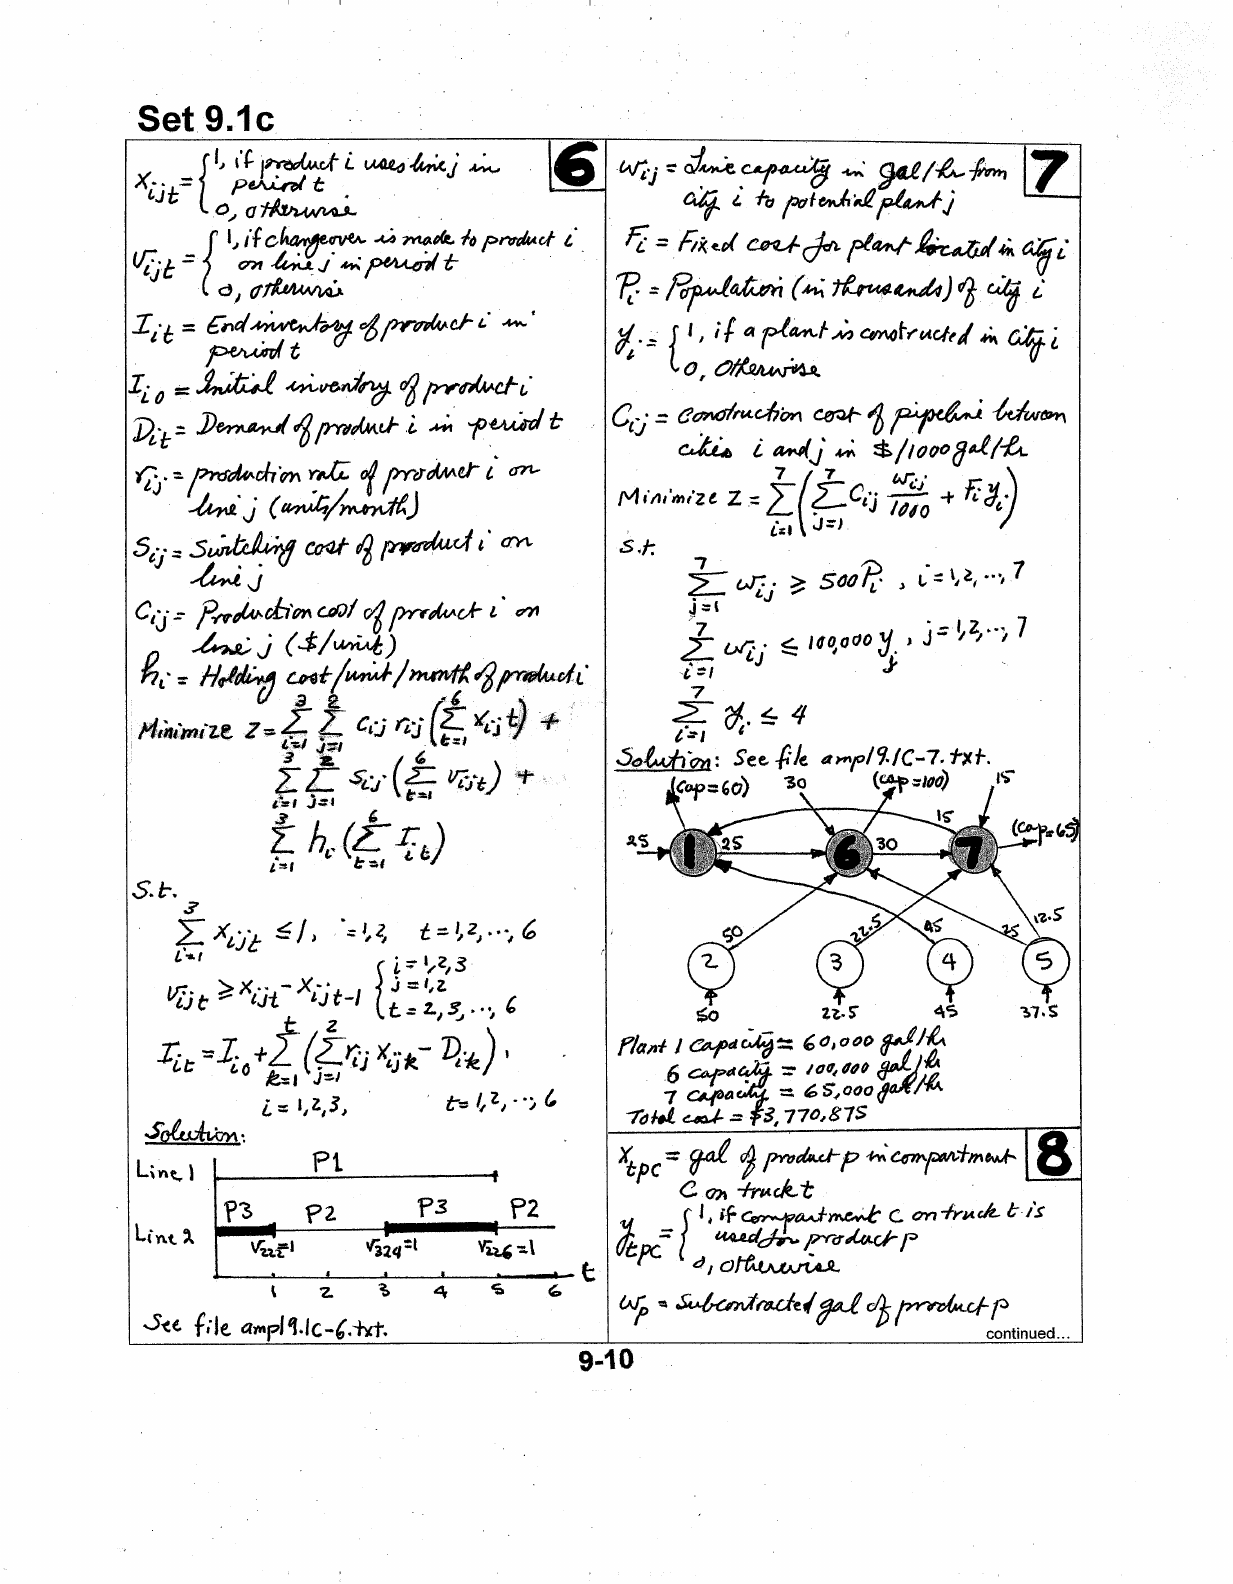 Set 9.1c
6
x_ijt = { 1, if product i uses line j in
period t
0, otherwise
v_ijt = { 1, if changeover is made to product i
on line j in period t
0, otherwise
I_it = End inventory of product i in
period t
I_i0 = Initial inventory of product i
D_it = Demand of product i in period t
r_ij = production rate of product i on
line j (units/month)
S_ij = Switching cost of product i on
line j
C_ij = Production cost of product i on
line j ($/unit)
h_i = Holding cost/unit/month of product i
Minimize Z = Σ_{i=1}^{3} Σ_{j=1}^{2} C_ij r_ij (Σ_{t=1}^{6} x_ijt) +
Σ_{i=1}^{3} Σ_{j=1}^{2} S_ij (Σ_{t=1}^{6} v_ijt) +
Σ_{i=1}^{3} h_i (Σ_{t=1}^{6} I_it)
S.t.
Σ_{i=1}^{3} x_ijt ≤ 1, = 1,2, t = 1,2,...,6
v_ijt ≥ x_ijt - x_ijt-1 { i = 1,2,3
j = 1,2
t = 2,3,...,6
I_it = I_i0 + Σ_{k=1}^{t} (Σ_{j=1}^{2} r_ij x_ijk - D_ik),
i = 1,2,3, t = 1,2,...,6
Solution:
Line 1 P1
P3 P2 P3 P2
Line 2
v_22t=1 v_324=1 v_226=1
t
1 2 3 4 5 6
See file ampl9.1c-6.txt.
7
w_ij = Line capacity in gal/hr from
city i to potential plant j
F_i = Fixed cost for plant located in city i
P_i = Population (in thousands) of city i
y_i = { 1, if a plant is constructed in city i
0, otherwise
C_ij = Construction cost of pipeline between
cities i and j in $/1000 gal/hr
Minimize Z = Σ_{i=1}^{7} (Σ_{j=1}^{7} C_ij w_ij/1000 + F_i y_i)
S.t.
Σ_{j=1}^{7} w_ij ≥ 500 P_i, i = 1,2,...,7
Σ_{i=1}^{7} w_ij ≤ 100,000 y_j, j = 1,2,...,7
Σ_{i=1}^{7} y_i ≤ 4
Solution: See file ampl9.1C-7.txt.
(cap=60) 30 (cap=100) 15
15
(cap=65)
25 1 25 6 30 7
50 22.5 45 25 12.5
2 3 4 5
50 22.5 45 37.5
Plant 1 capacity = 60,000 gal/hr
6 capacity = 100,000 gal/hr
7 capacity = 65,000 gal/hr
Total cost = $3,770,875
8
x_tpc = gal of product p in compartment
c on truck t
y_tpc = { 1, if compartment c on truck t is
used for product p
0, otherwise
w_p = Subcontracted gal of product p
continued...
9-10